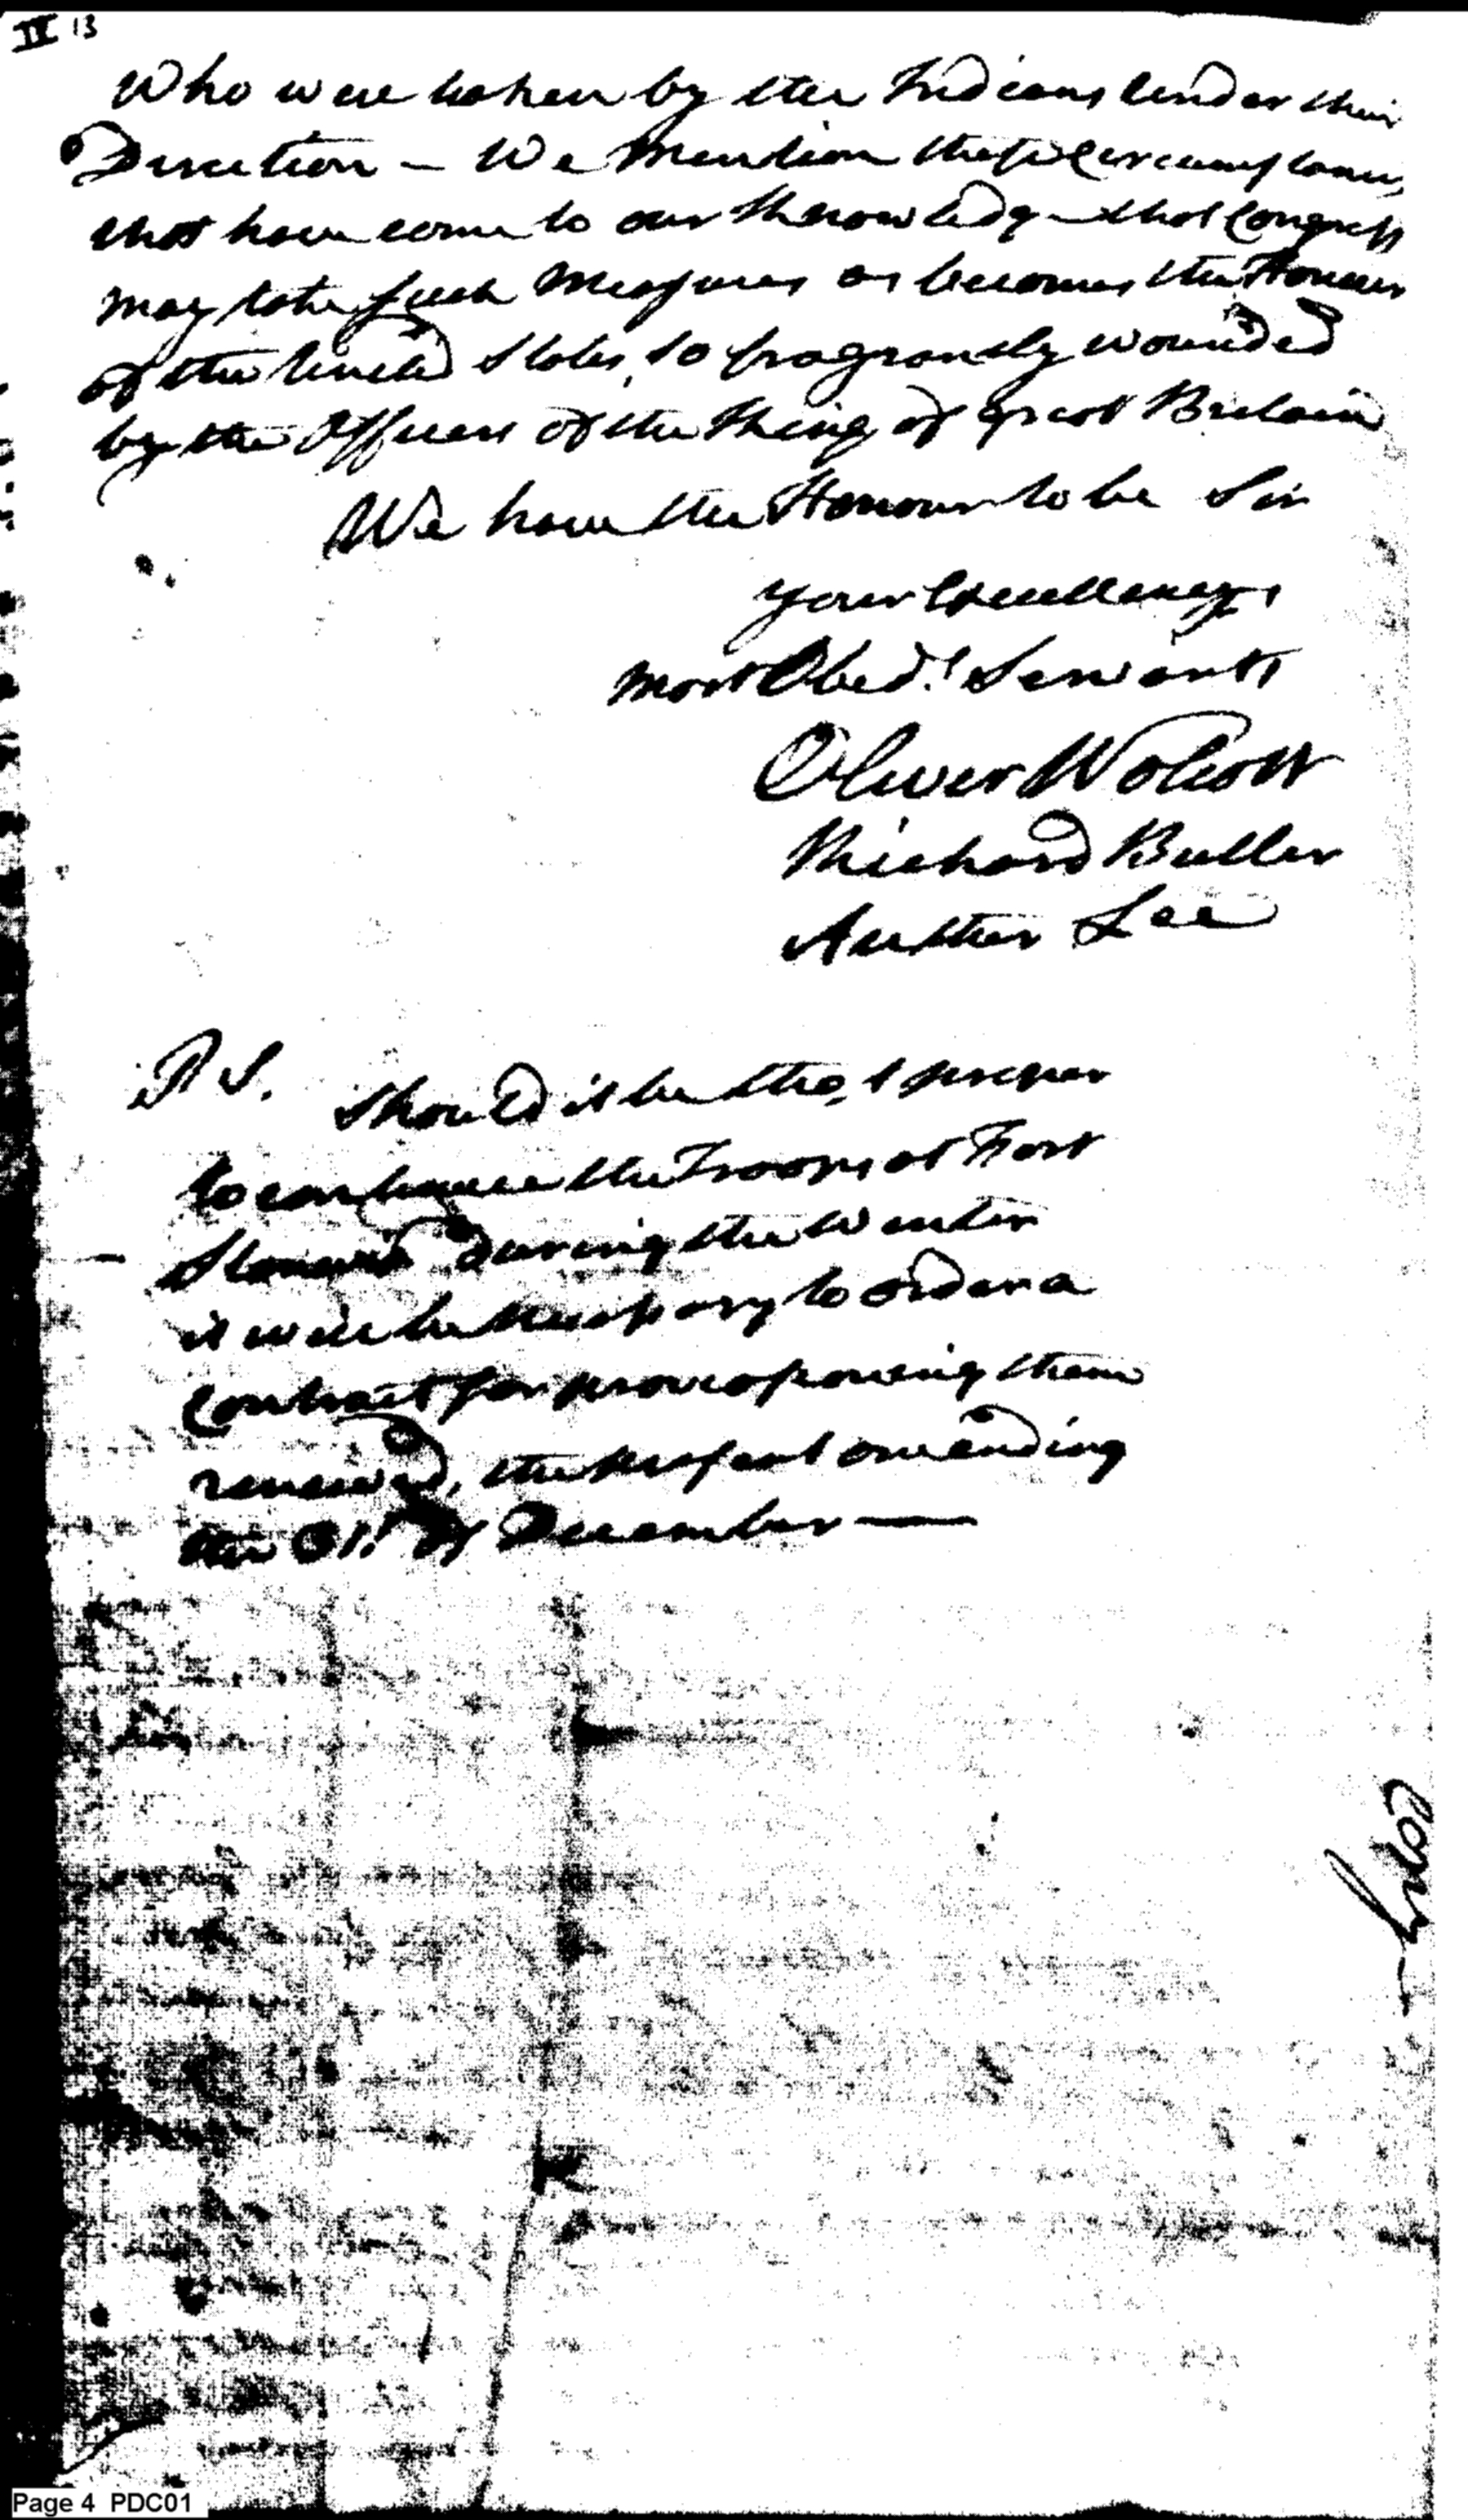 II 13
Who were taken by the Indians under their
Direction – We Mention these Circumstances,
that have come to our Knowledge – that Congress
may take such Measures as becomes the Honour
of the United States, so fragrantly wounded
by the Officers of the King of great Britain
We have the Honour to be Sir
your Excellencys
most Obed.t Servants
Oliver Wolcott
Richard Butler
Arther Lee
P S. Should it be tho,t proper
to continue the Troops at Fort
Stanwix during the Winter
it will be Necessary to order a
Contract for provisioning them
renewed, the present one ending
the 31.t of December —
Copy —
Page 4 PDC01